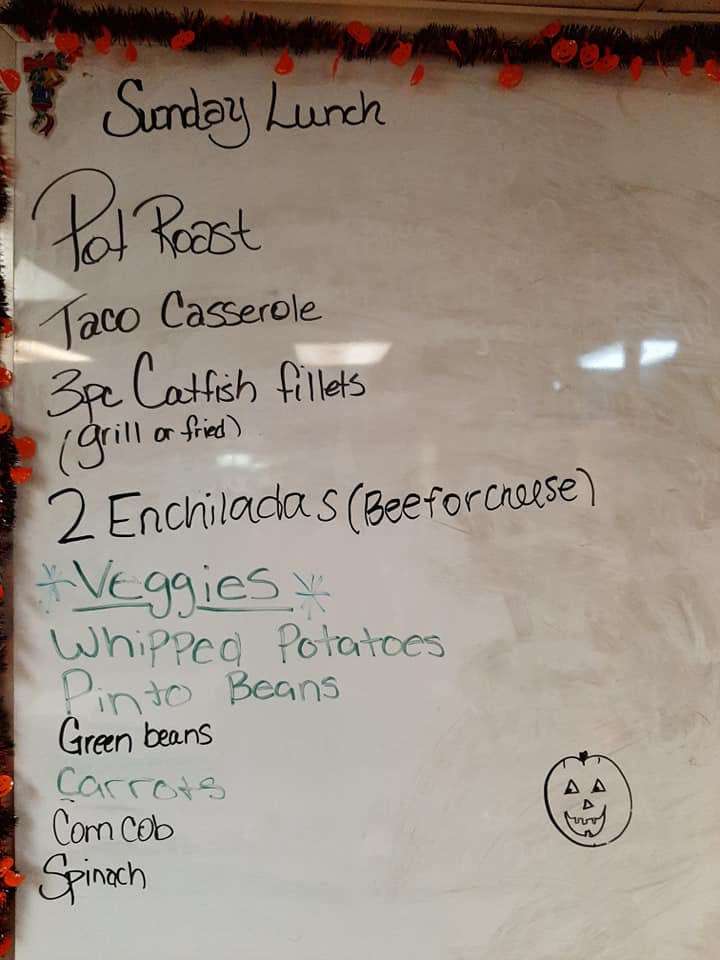 Sunday Lunch
Pot Roast
Taco Casserole
3pc Catfish fillets
(grill or fried)
2 Enchiladas (Beef or cheese)
*Veggies*
Whipped Potatoes
Pinto Beans
Green beans
Carrots
Corn cob
Spinach